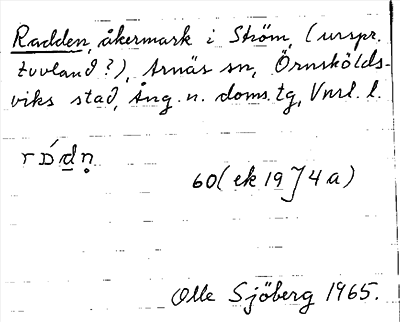 Radden, åkermark i Ström, (urspr.
tuvland?), Arnäs sn, Örnskölds-
viks stad, Ång. n. doms. tg, Vnrl. l.
60 (ek 19 J 4 a)
Olle Sjöberg 1965.